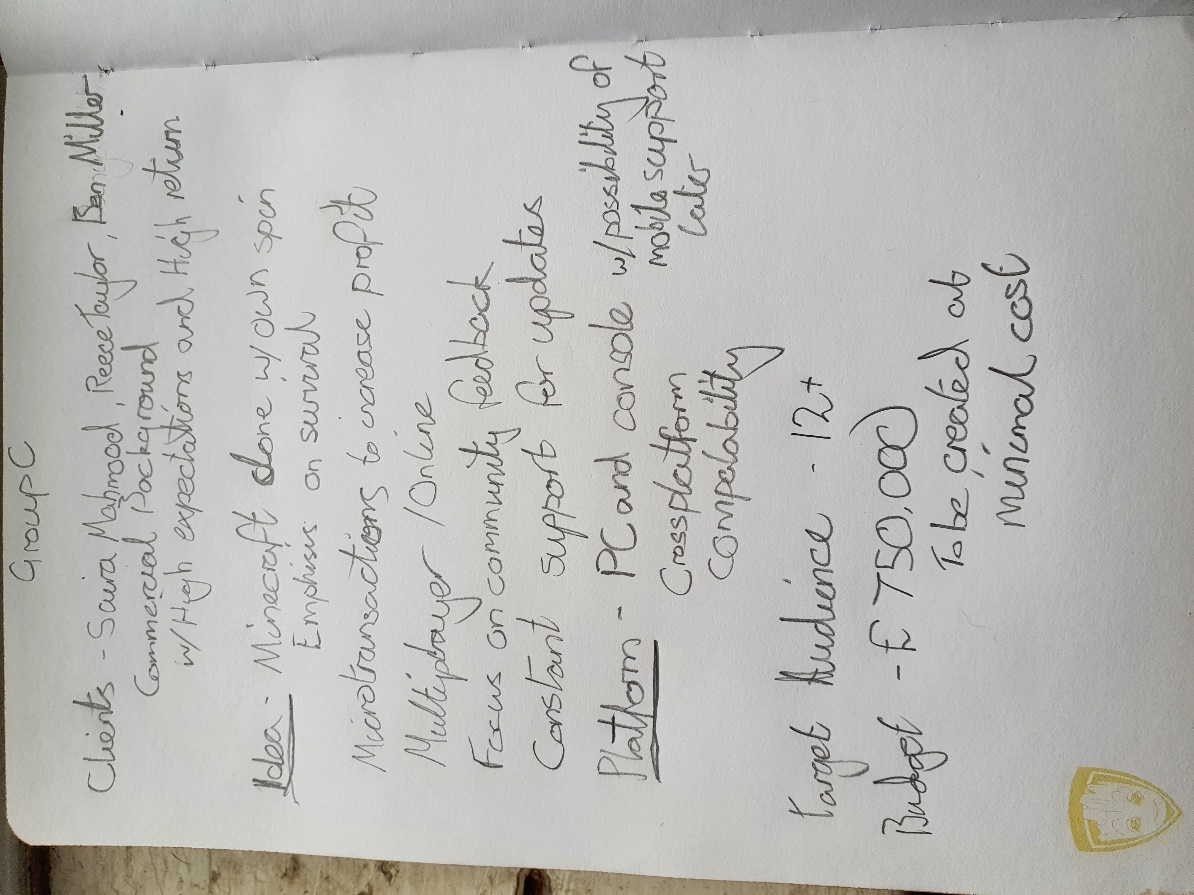 Group C
Clients - Saira Mahmood, Reece Taylor, Ben Miller
Commercial background
w/ High expectations and High return
Idea - Minecraft clone w/ own spin
Emphisis on survival
Microtransactions to increase profit
Multiplayer / Online
Focus on community feedback
Constant support for updates
Platform - PC and console w/ possibility of
mobile support
later
Crossplatform
Compatability
Target Audience - 12+
Budget - £750,000
To be created at
minimal cost